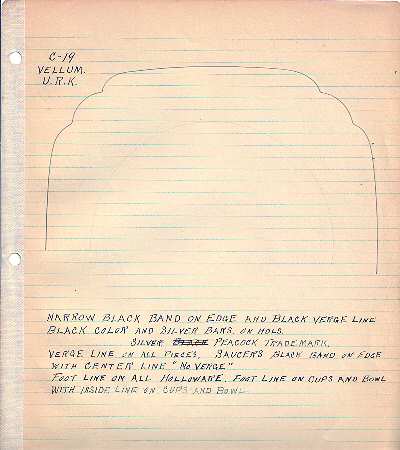 C-19
VELLUM.
U.R.K.
NARROW BLACK BAND ON EDGE AND BLACK VERGE LINE
BLACK COLOR AND SILVER BARS. ON HDLS.
SILVER BLACK PEACOCK TRADEMARK.
VERGE LINE ON ALL PIECES, SAUCERS BLACK BAND ON EDGE
WITH CENTER LINE "NO VERGE"
FOOT LINE ON ALL HOLLOWARE. FOOT LINE ON CUPS AND BOWL
WITH INSIDE LINE ON CUPS AND BOWL